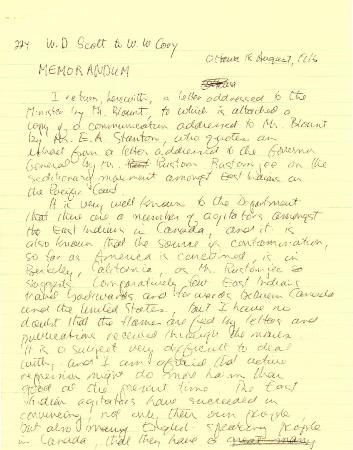 224 W. D Scott to W. W Cory
Ottawa 18 August, 1916
MEMORANDUM
I return, herewith, a letter addressed to the
Minister by Mr. Blount, to which is attached a
copy of a communication addressed to Mr. Blount
by Mr. E. A. Stanton, who quotes an
extract from a letter addressed to the Governor
General by Mr. Rustom Rustomjee on the
seditionary movement amongst East Indians on
the Pacific Coast.
It is very well known to the Department
that there are a number of agitators amongst
the East Indians in Canada, and it is
also known that the source of contamination,
so far as America is concerned, is in
Berkeley, California, as Mr. Rustomjee
suggests. Comparatively few East Indians
travel backwards and forwards between Canada
and the United States, but I have no
doubt that the flames are fed by letters and
publications received through the mails.
It is a subject very difficult to deal
with, and I am afraid that active
repression might do more harm than
good at the present time. The East
Indian agitators have succeeded in
convincing, not only their own people,
but also many English speaking people
in Canada, that they have a great many